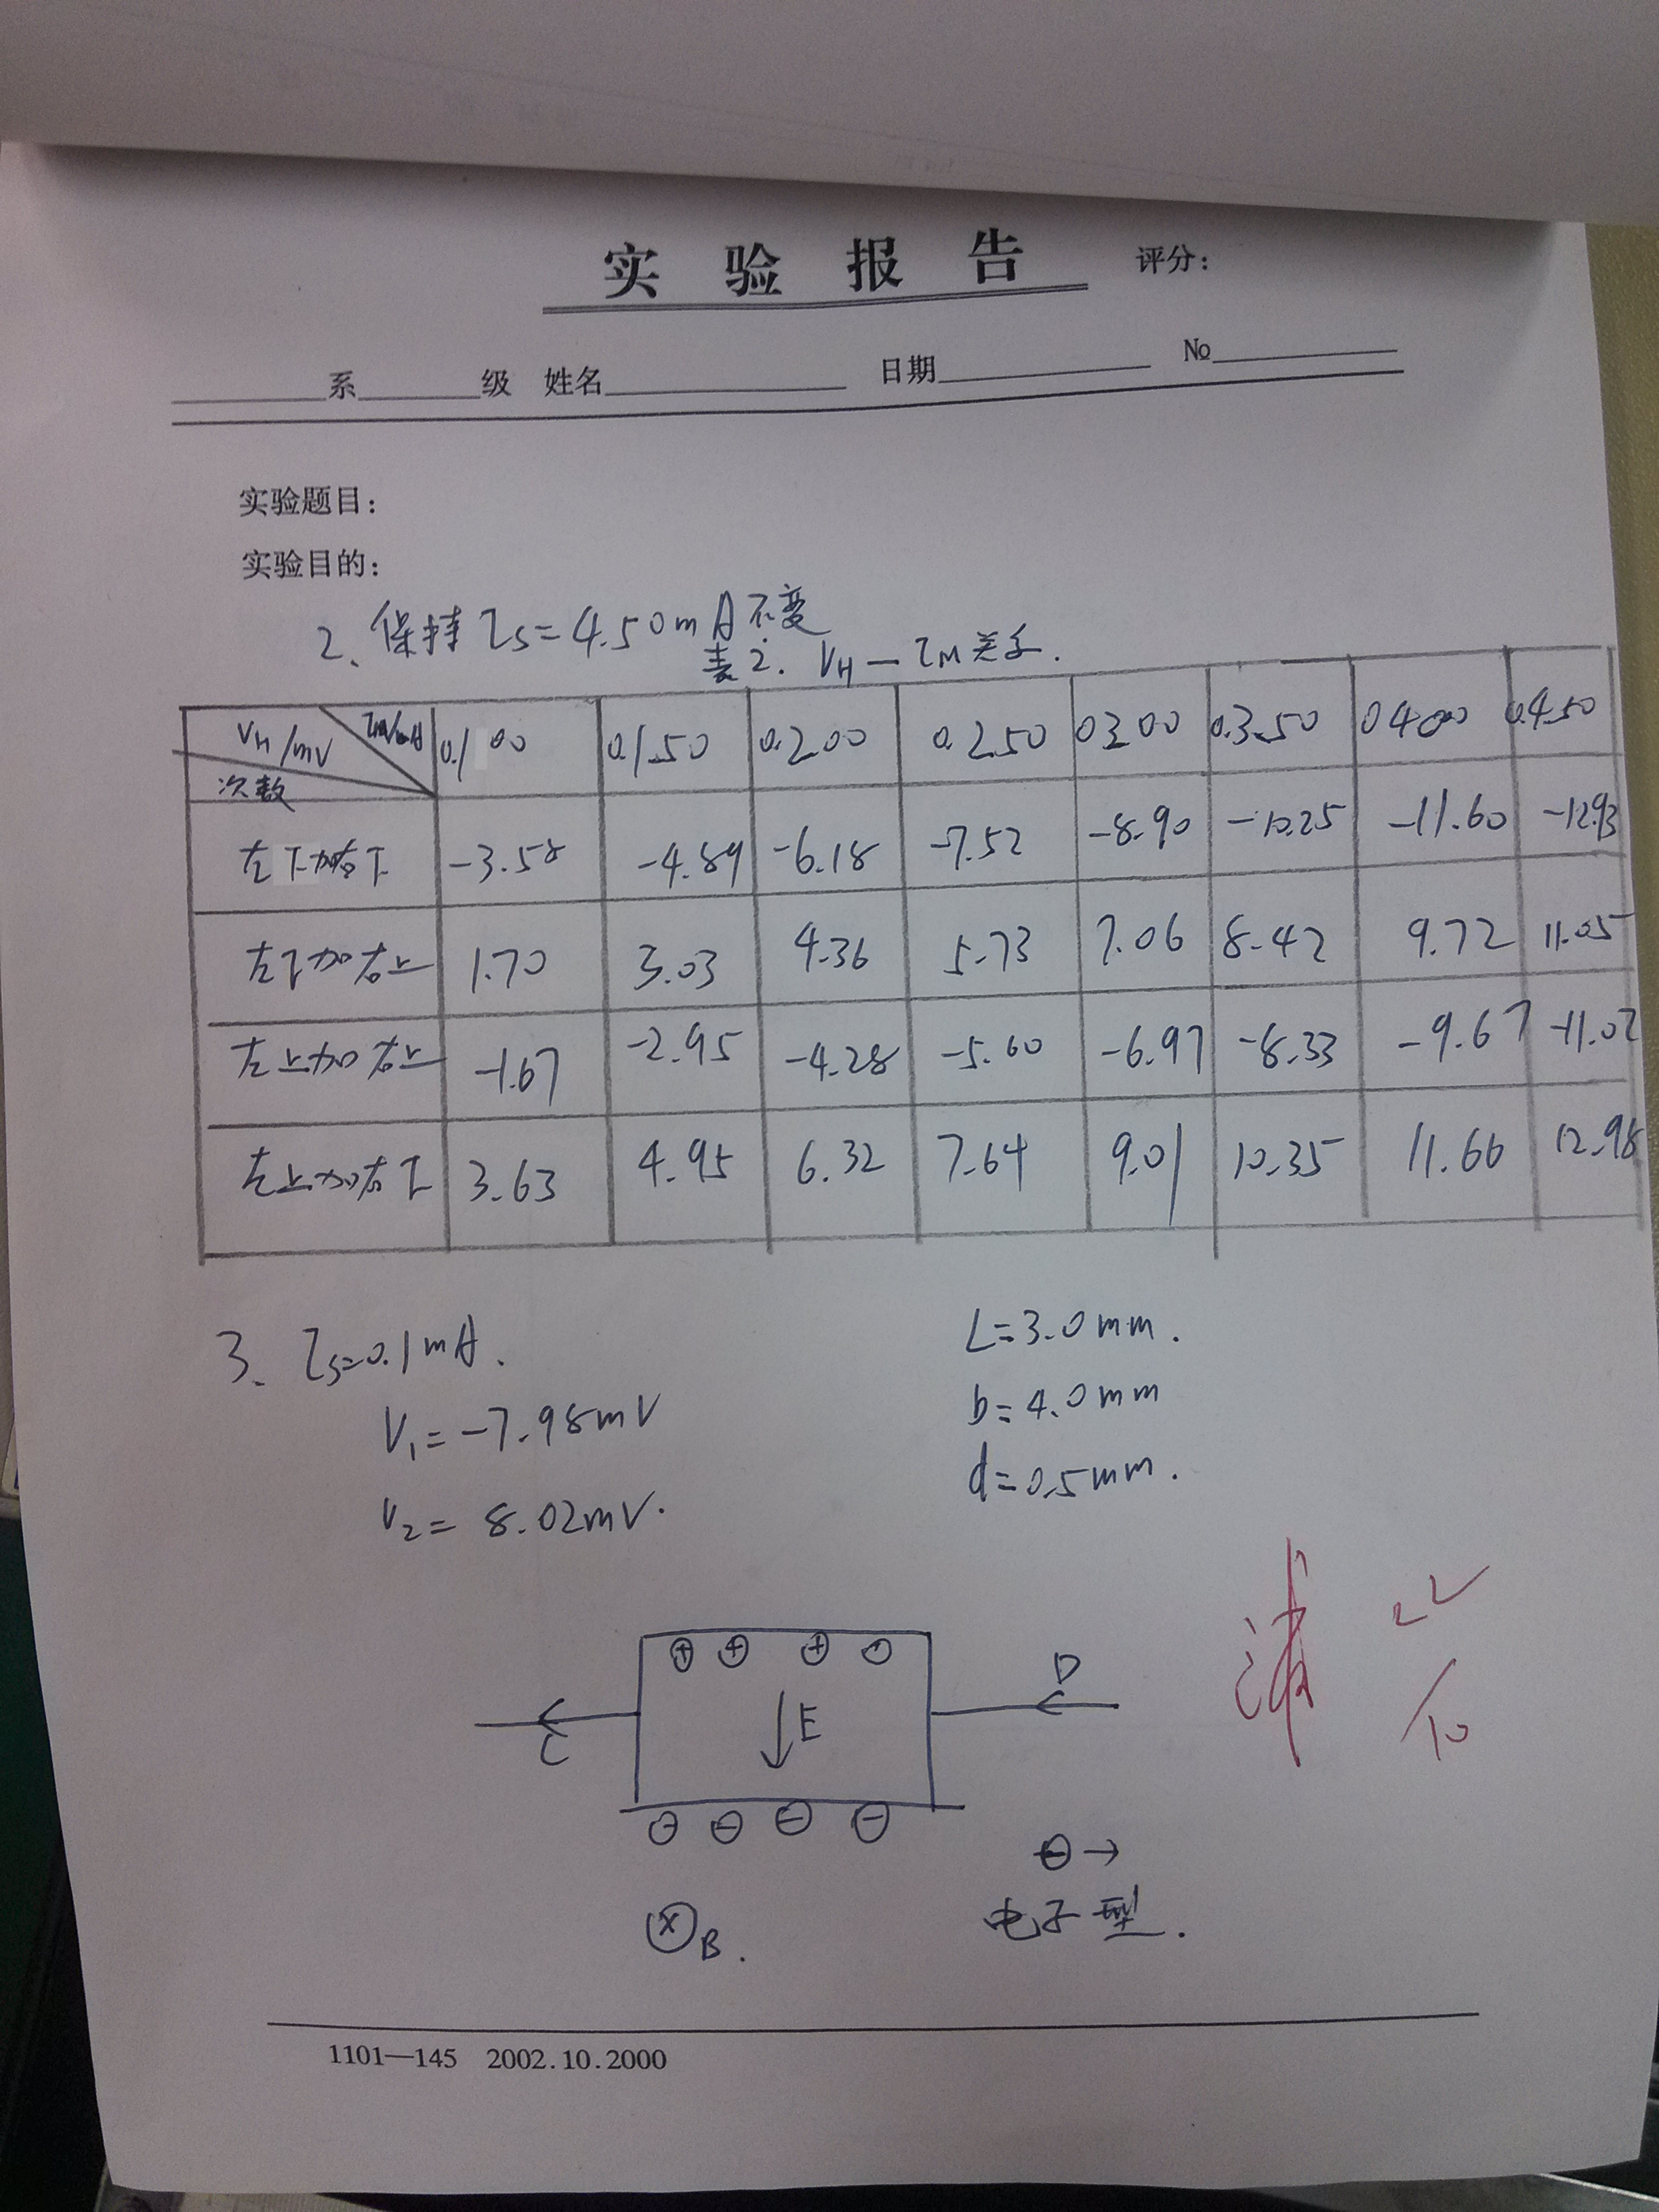 实验报告 评分:
系 级 姓名 日期 №
实验题目:
实验目的:
2、保持Is=4.50mA不变
表2. VH—IM关系.
VH/mV IM/mA 次数 0.100 0.150 0.200 0.250 0.300 0.350 0.400 0.450
左下加右下 -3.58 -4.89 -6.18 -7.52 -8.90 -10.25 -11.60 -12.93
左下加右上 1.70 3.03 4.36 5.73 7.06 8.42 9.72 11.05
左上加右上 -1.67 -2.95 -4.28 -5.60 -6.97 -8.33 -9.67 -11.02
左上加右下 3.63 4.95 6.32 7.64 9.01 10.35 11.66 12.98
3、Is=0.1mA. L=3.0mm.
V1=-7.98mV b=4.0mm
V2=8.02mV. d=0.5mm.
D
E
C
B.
电子型.
1101—145 2002.10.2000